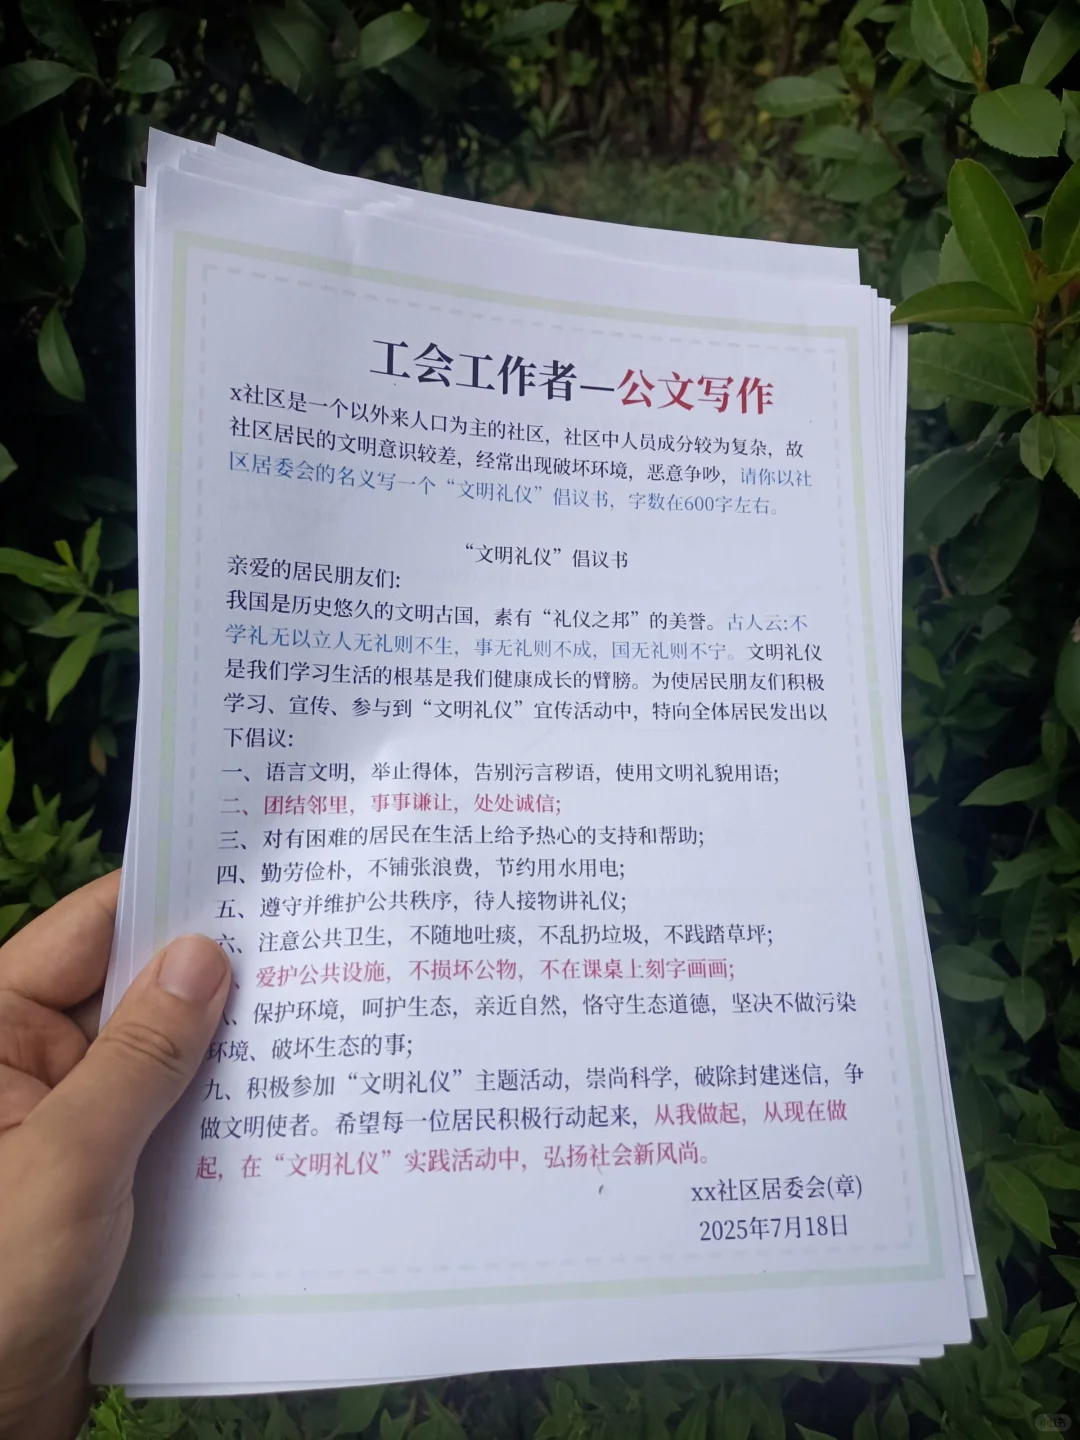 工会工作者—公文写作
x社区是一个以外来人口为主的社区，社区中人员成分较为复杂，故
社区居民的文明意识较差，经常出现破坏环境，恶意争吵，请你以社
区居委会的名义写一个“文明礼仪”倡议书，字数在600字左右。
“文明礼仪”倡议书
亲爱的居民朋友们:
我国是历史悠久的文明古国，素有“礼仪之邦”的美誉。古人云:不
学礼无以立人无礼则不生，事无礼则不成，国无礼则不宁。文明礼仪
是我们学习生活的根基是我们健康成长的臂膀。为使居民朋友们积极
学习、宣传、参与到“文明礼仪”宣传活动中，特向全体居民发出以
下倡议:
一、语言文明，举止得体，告别污言秽语，使用文明礼貌用语;
二、团结邻里，事事谦让，处处诚信;
三、对有困难的居民在生活上给予热心的支持和帮助;
四、勤劳俭朴，不铺张浪费，节约用水用电;
五、遵守并维护公共秩序，待人接物讲礼仪;
六、注意公共卫生，不随地吐痰，不乱扔垃圾，不践踏草坪;
、爱护公共设施，不损坏公物，不在课桌上刻字画画;
八、保护环境，呵护生态，亲近自然，恪守生态道德，坚决不做污染
环境、破坏生态的事;
九、积极参加“文明礼仪”主题活动，崇尚科学，破除封建迷信，争
做文明使者。希望每一位居民积极行动起来，从我做起，从现在做
起，在“文明礼仪”实践活动中，弘扬社会新风尚。
xx社区居委会(章)
2025年7月18日